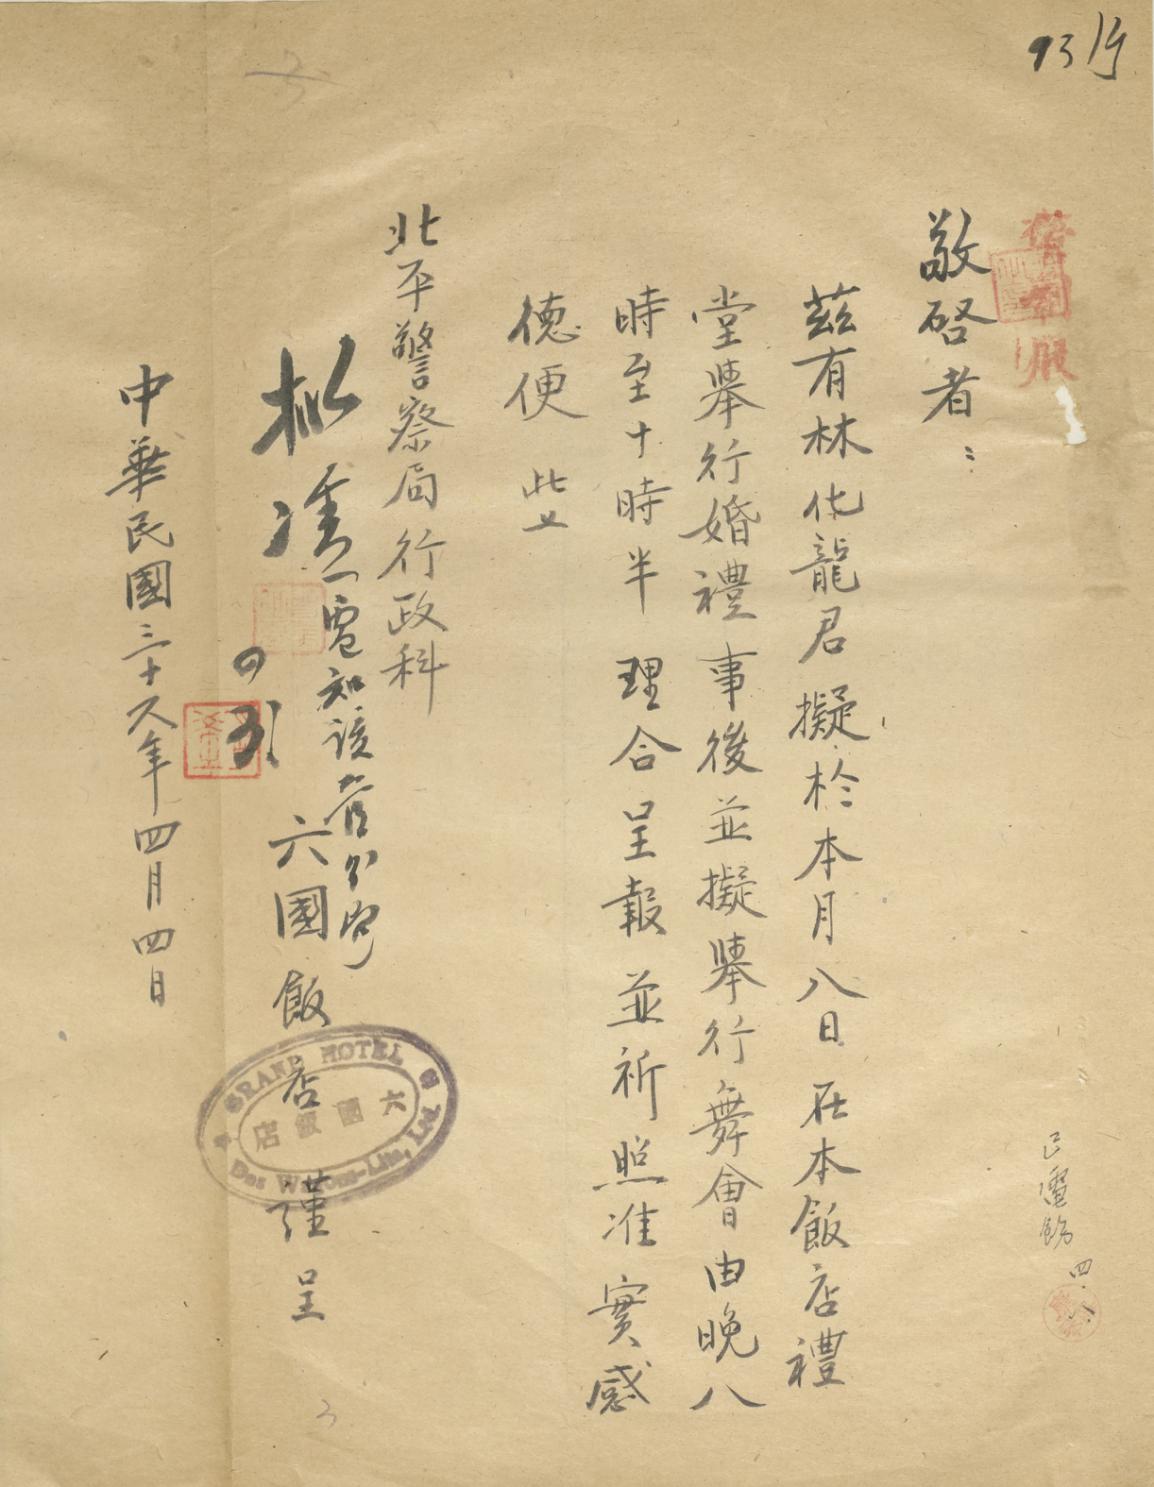 敬啓者：
茲有林化龍君擬於本月八日在本飯店禮
堂舉行婚禮事後並擬舉行舞會由晚八
時至十時半理合呈報並祈照准實感
德便 此上
北平警察局行政科
六國飯店 謹呈
擬准
電知該管分局
中華民國三十八年四月四日
GRAND HOTEL
六國飯店
Des Wagons-Lits, Ltd.